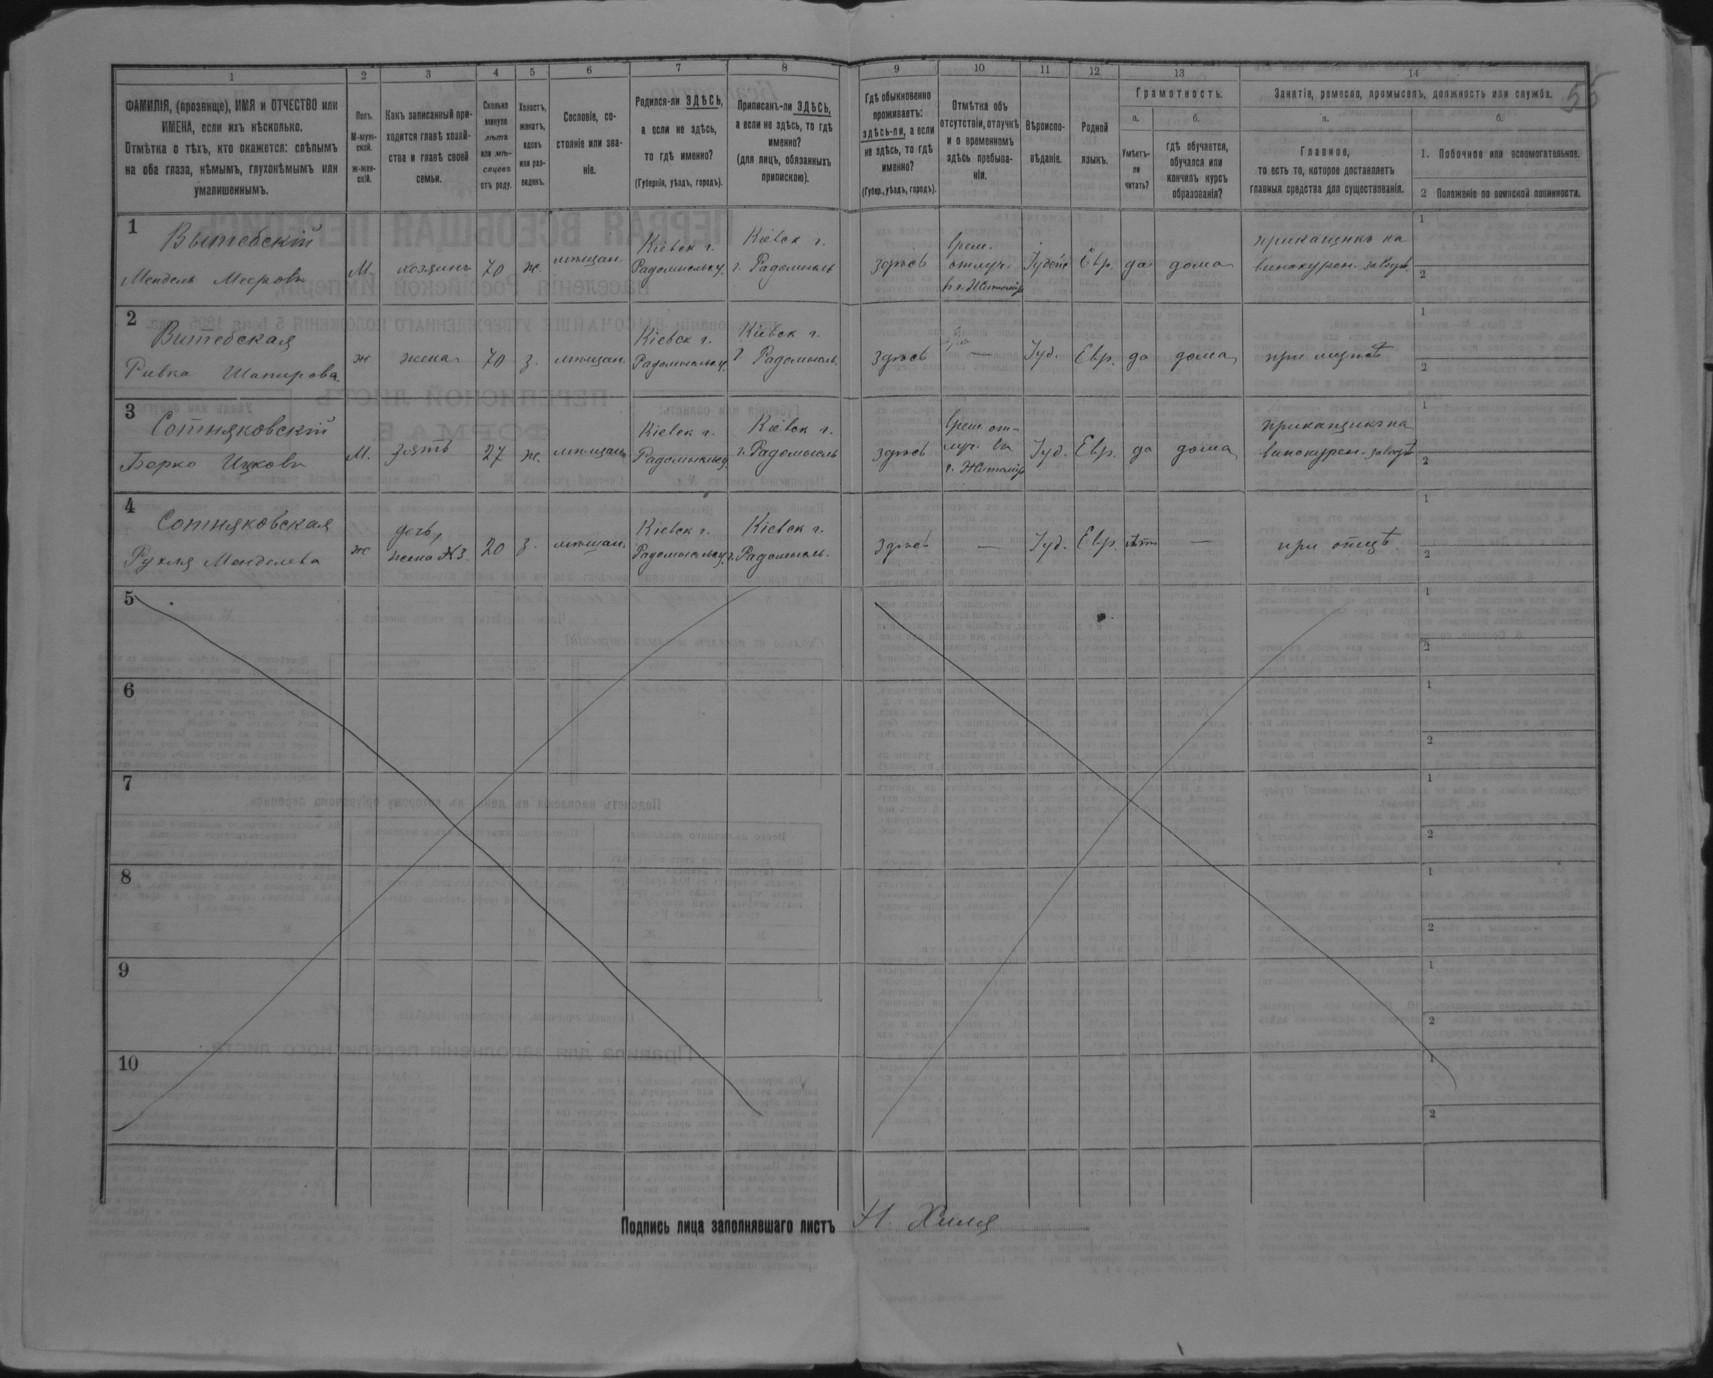 1 2 3 4 5 6 7 8 9 10 11 12 13 14
55
ФАМИЛІЯ, (прозвище), ИМЯ и ОТЧЕСТВО или
ИМЕНА, если ихъ нѣсколько.
Отмѣтка о тѣхъ, кто окажется: слѣпымъ
на оба глаза, нѣмымъ, глухонѣмымъ или
умалишеннымъ.
Полъ.
М-муж-
ской.
ж-жен-
скій.
Какъ записанный при-
ходится главѣ хозяй-
ства и главѣ своей
семьи.
Сколько
минуло
лѣтъ
или мѣ-
сяцевъ
отъ роду.
Холостъ,
женатъ,
вдовъ
или раз-
веденъ.
Сословіе, со-
стояніе или зва-
ніе.
Родился-ли ЗДѢСЬ,
а если не здѣсь,
то гдѣ именно?
(Губернія, уѣздъ, городъ).
Приписанъ-ли ЗДѢСЬ,
а если не здѣсь, то гдѣ
именно?
(для лицъ, обязанныхъ
припискою).
Гдѣ обыкновенно
проживаетъ:
здѣсь-ли, а если
не здѣсь, то гдѣ
именно?
(Губер., уѣздъ, городъ).
Отмѣтка объ
отсутствіи, отлучкѣ
и о временномъ
здѣсь пребыва-
ніи.
Вѣроиспо-
вѣданіе.
Родной
языкъ.
Грамотность.
а.
Умѣетъ-
ли
читать?
б.
гдѣ обучается,
обучался или
кончилъ курсъ
образованія?
Занятіе, ремесло, промыселъ, должность или служба.
а.
Главное,
то есть то, которое доставляетъ
главныя средства для существованія.
б.
1. Побочное или вспомогательное.
2 Положеніе по воинской повинности.
1
Витебскій
Мендель Мееровъ
М. хозяинъ 70 ж. мѣщан.
Кіевск г.
Радомысльск у.
Кіевск г.
г. Радомысль
здѣсь
Врем.
отлуч.
въ г. Житоміръ
Іудейс Евр. да дома
прикащикъ на
винокурен. заводѣ
1
2
2
Витебская
Ривка Шапирова
ж жена 70 з. мѣщан.
Кіевск г.
Радомысльск у.
Кіевск г.
г Радомысль
здѣсь — Іуд. Евр. да дома при мужѣ
1
2
3
Сотняковскій
Берко Ицковъ
М. зять 27 ж. мѣщан.
Кіевск г.
Радомысльск у.
Кіевск г.
г. Радомысль
здѣсь
Врем. от-
луч. въ
г. Житоміръ
Іуд. Евр. да дома
прикащикъ на
винокурен. заводѣ
1
2
4
Сотняковская
Рухля Менделева
ж
дочь,
жена №3 20 з. мѣщан.
Кіевск г.
Радомысльск у.
Кіевск г.
г. Радомысль.
здѣсь — Іуд. Евр. нѣтъ — при отцѣ.
1
2
5
1
2
6
1
2
7
1
2
8
1
2
9
1
2
10
1
2
Подпись лица заполнявшаго листъ Н.